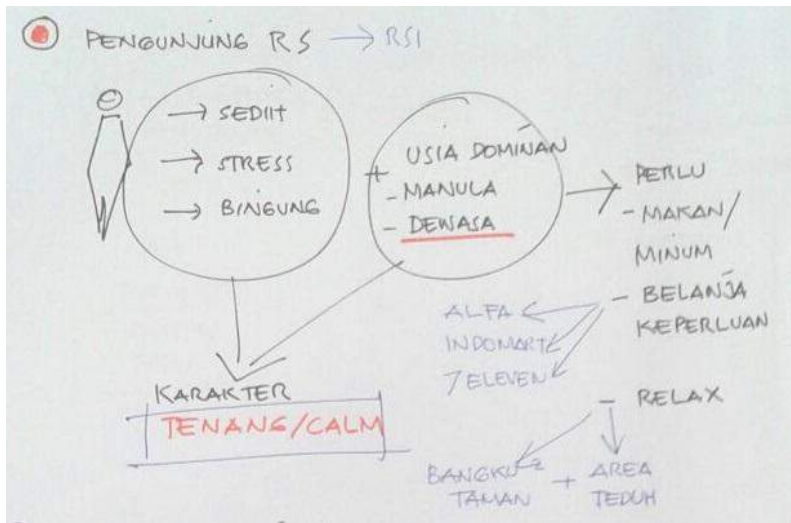 PENGUNJUNG RS → RSI
→ SEDIH
→ STRESS
→ BINGUNG
+ USIA DOMINAN
- MANULA
- DEWASA
PERLU
- MAKAN/
MINUM
- BELANJA
KEPERLUAN
ALFA
INDOMART
7 ELEVEN
- RELAX
BANGKU²
TAMAN
+ AREA
TEDUH
KARAKTER
TENANG/CALM